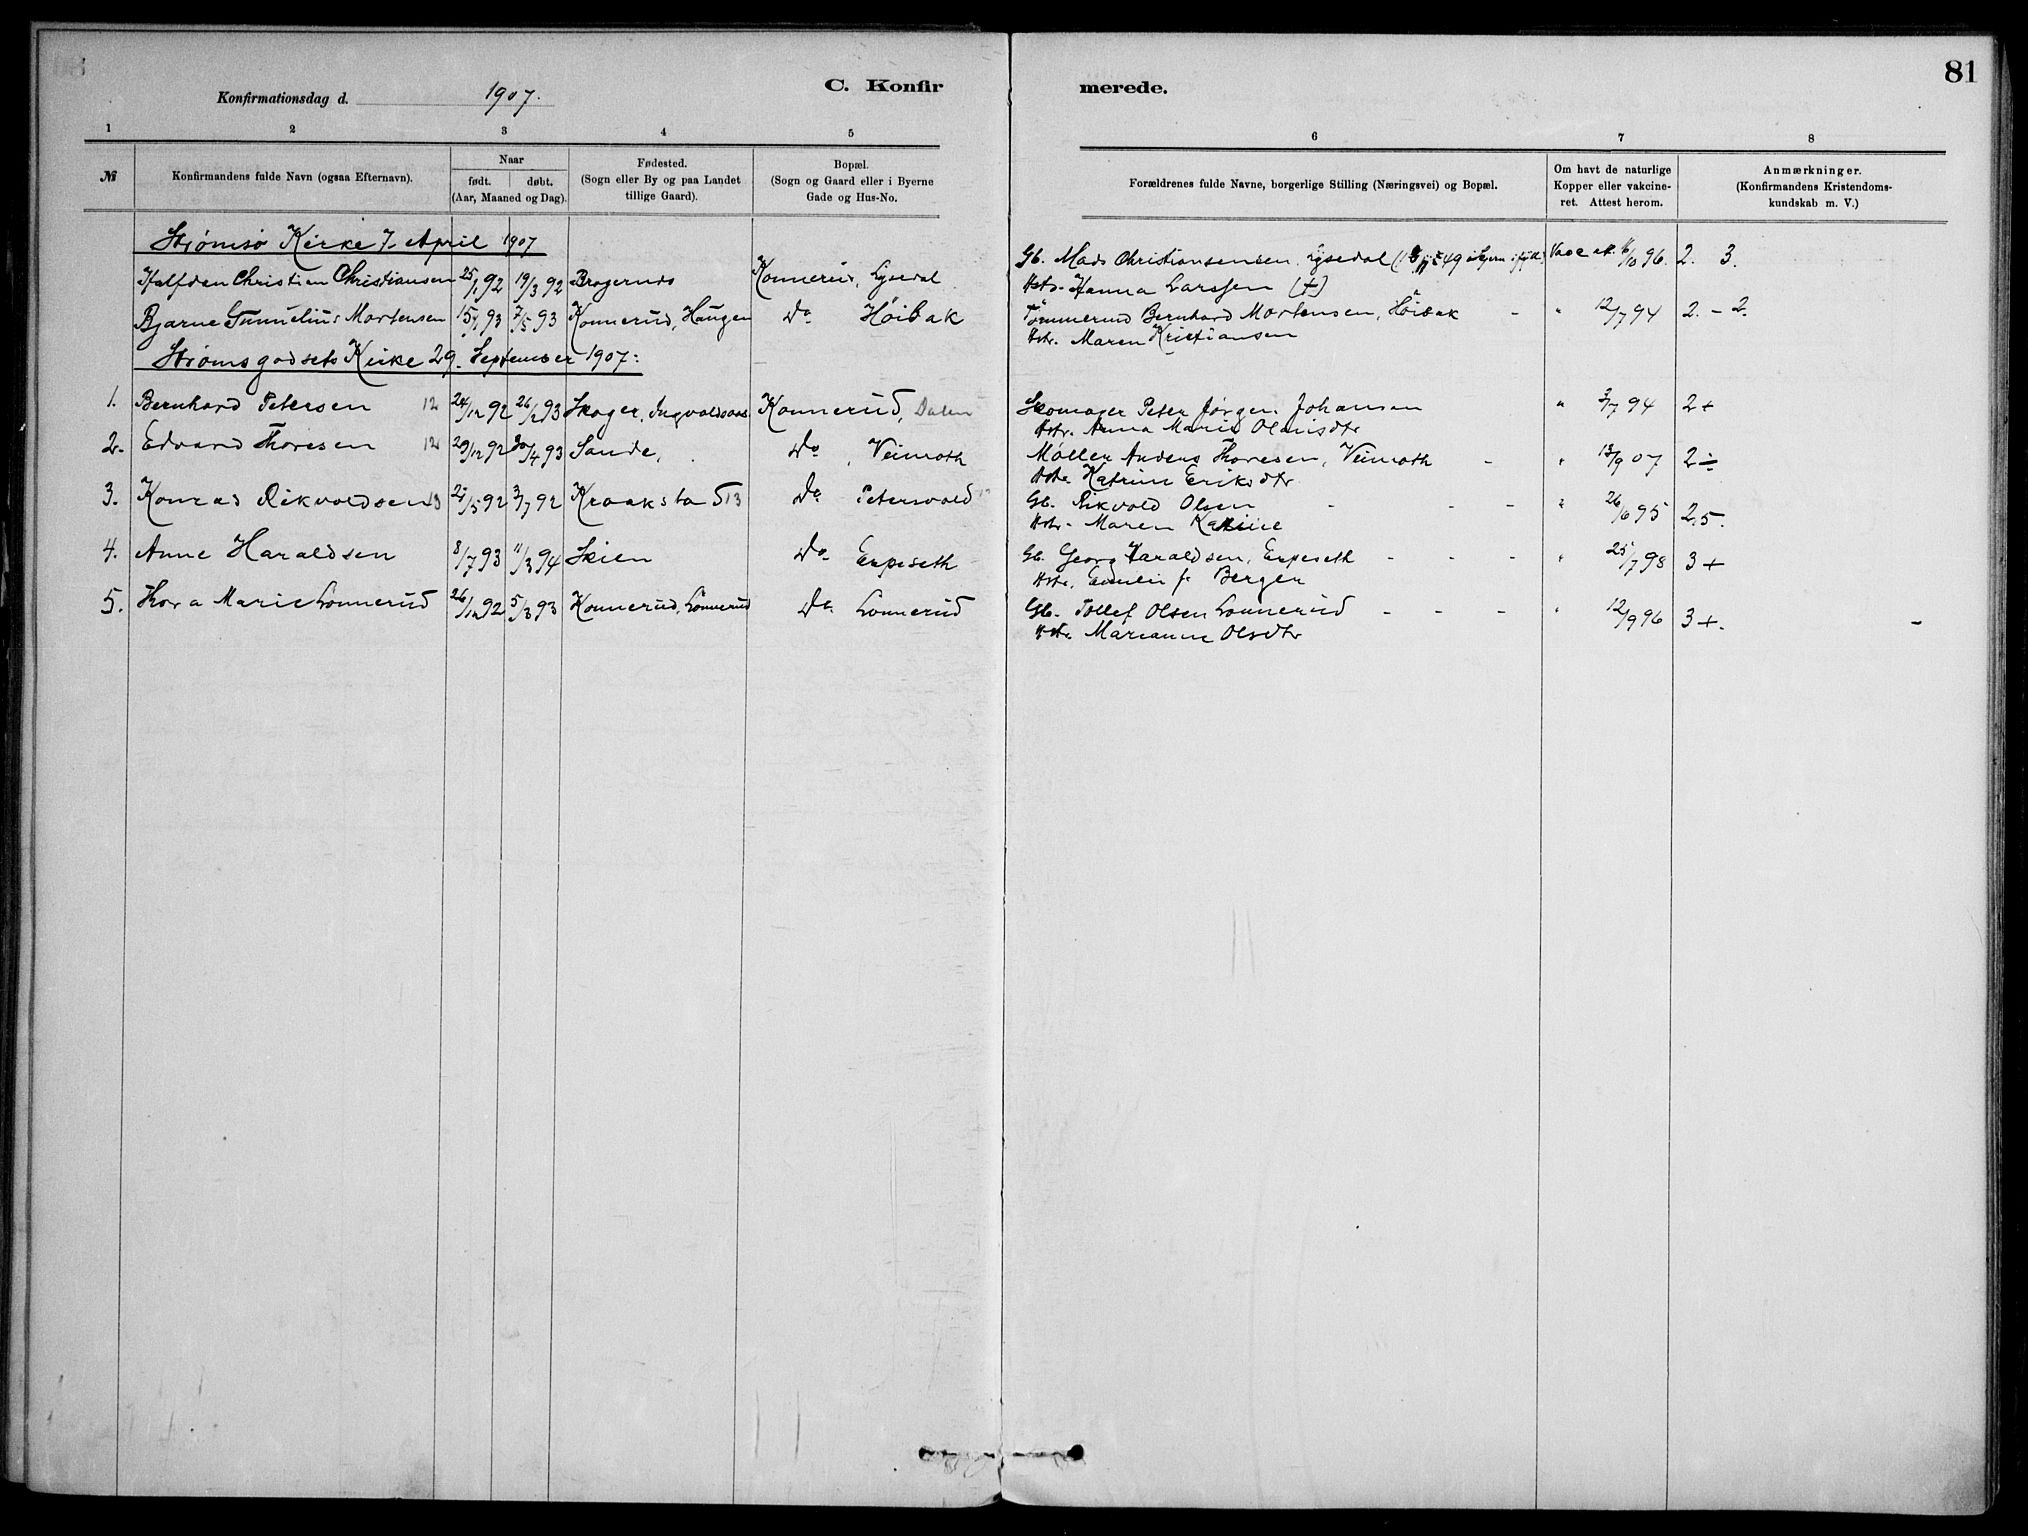 81
Konfirmationsdag d. 1907.
C. Konfir merede.
1 2 3 4 5 6 7 8
№
Konfirmandens fulde Navn (ogsaa Efternavn).
Naar
født. døbt.
(Aar, Maaned og Dag).
Fødested.
(Sogn eller By og paa Landet
tillige Gaard).
Bopæl.
(Sogn og Gaard eller i Byerne
Gade og Hus-No.
Forældrenes fulde Navne, borgerlige Stilling (Næringsvei) og Bopæl.
Om havt de naturlige
Kopper eller vakcine-
ret. Attest herom.
Anmærkninger.
(Konfirmandens Kristendoms-
kundskab m. V.)
Strømsø Kirke 7. April 1907
Halfdan Christian Christiansen 25/1 92 19/3 92 Bragernes Konnerud, Lysedal Gb. Mads Christiansen Lysedal Vacc. att. 16/10 96. 2. 3.
Hstr. Hanna Larssen (+)
Bjarne Gunnelius Mortensen 15/1 93 7/5 93 Konnerud, Haugen Do Høibak Tømmermd Bernhard Mortensen, Høibak - " 12/7 94 2. - 2.
Hstr. Maren Kristiansen
Strømsgodsets Kirke 29. September 1907:
1. Bernhard Petersen 12 24/12 92 26/2 93 Skoger, Konnerud, Dalen Skomager Peter Jørgen Johansen " 3/7 94 2+
Hstr. Anna Marie
2. Edvard Thoresen 12 29/12 92 30/4 93 Sande, Do, Veimoth Møller Anders Thoresen, Veimoth - " 13/9 07 2÷
Hstr. Katrine Eriksdtr
3. Konrad Rikvoldsen 13 24/5 92 3/7 92 Kraakstad 13 Do Petersvold Gb. Rikvold Olsen - - - " 26/6 95 2,5.
Hstr. Maren Karine
4. Anne Haraldsen 8/7 93 11/3 94 Skien Do Enpeseth Gb. Georg Haraldsen, Enpeseth - - - " 25/7 98 3+
Hstr. f. Bergen
5. Thora Marie Lonnerud 26/12 92 5/3 93 Konnerud, Lonnerud Do Lonnerud Gb. Tollef Olsen Lonnerud - - - " 12/9 96 3+. -
Hstr. Marianne Olsdtr